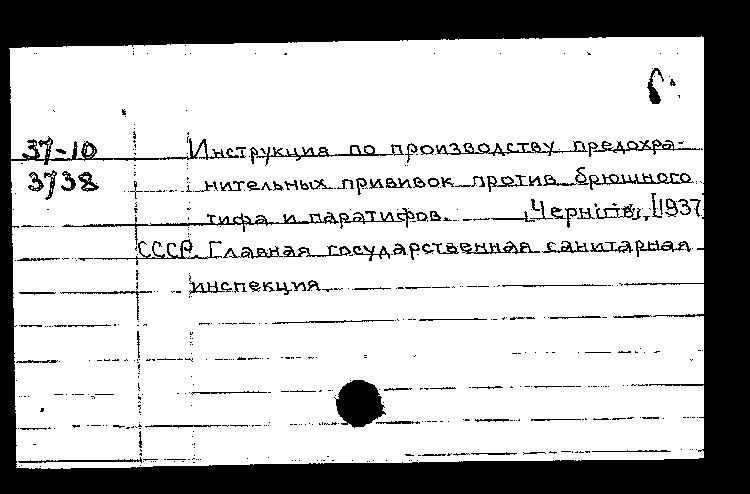 37-10 Инструкция по производству предохра-
3738 нительных прививок против брюшного
тифа и паратифов. Чернігів, [1937
СССР. Главная государственная санитарная
инспекция